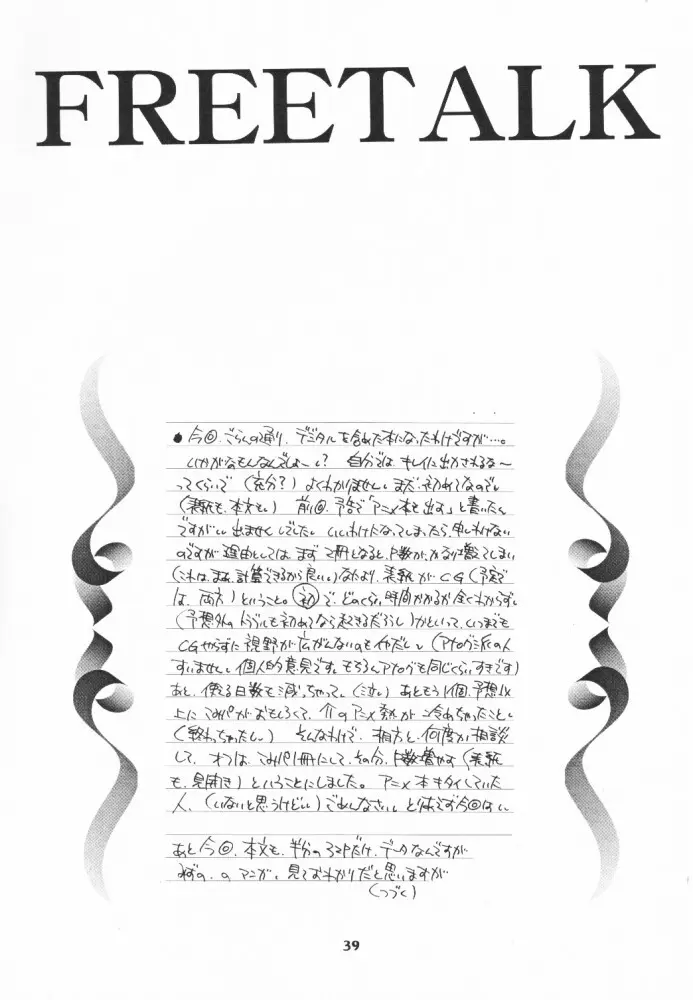 FREETALK
●今回、ごらんの通り、デジタルを含めた本になったわけですが…。
いかがなもんなんでしょーい? 自分では キレイに出かされるな〜
ってくらいで (充分?) よくわかりません。まだ、初めてなので。
(表紙も、本文も。) 前回、予告で「アニメ本を出す」と書いたん
ですが、出ませんでした。いいわけになってしまったら、申しわけない
のですが 理由としては まず 2冊になると 数が、かなり増えてしまい
(これは、まぁ、計算できるから良い。) なにより、表紙が CG (予定で
は、両方) ということ。初で、どのくらい時間かかるか全くわからず。
(予想外のトラブルも初めてなら起きるだろうし) かといって、いつまでも
CGやらずに視野が広がんないのもイヤだし。(アナログ派の人
すいません。個人的意見です。もちろんアナログも同じくらいすきです)
あと、使える日数も減っちゃって。(泣) あともう1個、予想以
上に こみパがおもしろくて、 のアニメ熱が 冷めちゃったこと。
(終わっちゃったし。) そんなわけで、相方と、何度か相談
して、 こみパ1冊にして、その分、 数増やす (表紙
も、見開き) ということにしました。アニメ本 していた
人、(いないと思うけどい) ごめんなさい。とりあえず今回はい
あと今回、本文も、半分の だけ、データなんですが
 のマンガ、見ておわかりだと思いますが
(つづく)
39